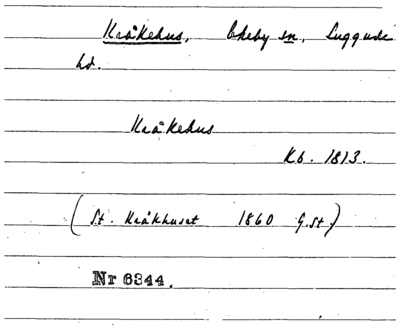 Kråkehus, Ekeby sn, Luggude
hd.
Kråkehus
Kb. 1813.
(St. Kråkhuset 1860 G.St)
Nr 6344.